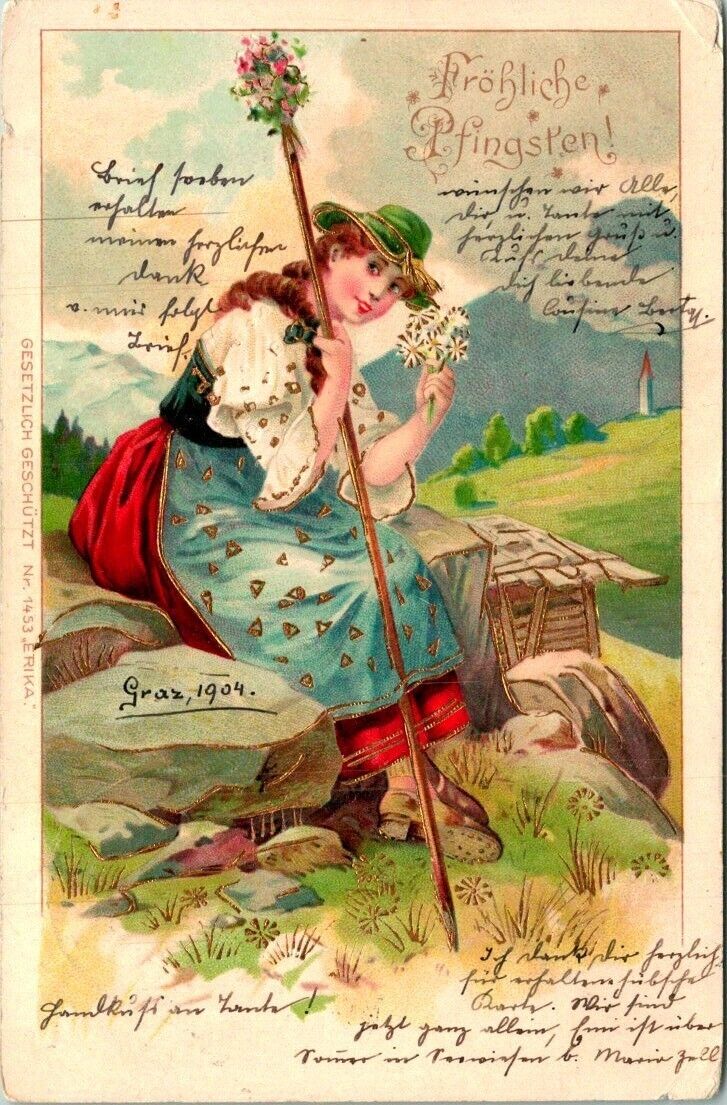 Fröhliche
Pfingsten!
wünschen wir Alle,
Dir u. Tante mit
herzlichen Gruß u.
Kuß deine
Dich liebende
Cousine Berta.
Brief soeben
erhalten
meinen herzlichen
Dank
v. mir folgt
Brief.
Graz, 1904.
GESETZLICH GESCHÜTZT Nr. 1453 „ERIKA."
Ich dank' Dir herzlich
für erhaltene hübsche
Karte. Wir sind
jetzt ganz allein, ist über
Sommer in Seewiesen b. Maria Zell
Handkuß an Tante!